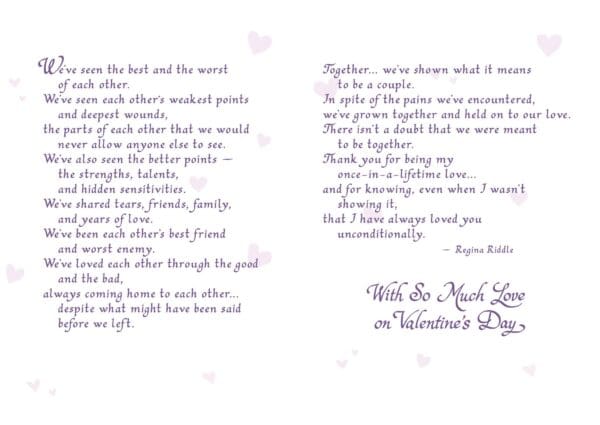 We've seen the best and the worst
of each other.
We've seen each other's weakest points
and deepest wounds,
the parts of each other that we would
never allow anyone else to see.
We've also seen the better points —
the strengths, talents,
and hidden sensitivities.
We've shared tears, friends, family,
and years of love.
We've been each other's best friend
and worst enemy.
We've loved each other through the good
and the bad,
always coming home to each other...
despite what might have been said
before we left.
Together... we've shown what it means
to be a couple.
In spite of the pains we've encountered,
we've grown together and held on to our love.
There isn't a doubt that we were meant
to be together.
Thank you for being my
once-in-a-lifetime love...
and for knowing, even when I wasn't
showing it,
that I have always loved you
unconditionally.
— Regina Riddle
With So Much Love
on Valentine's Day